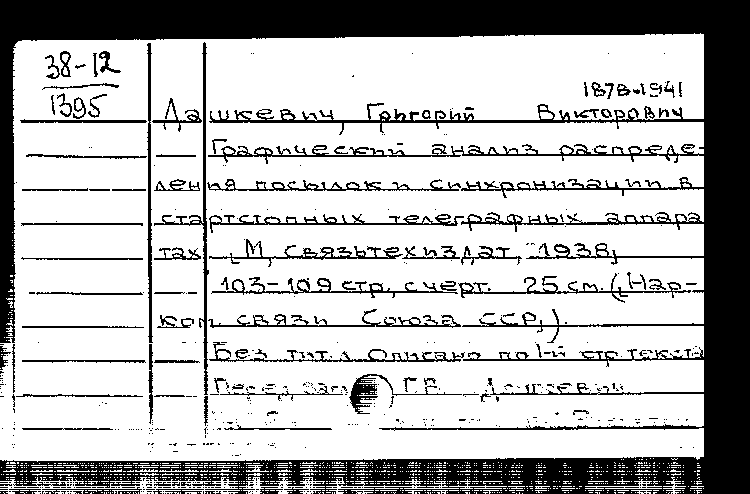 38-12
1395
1878-1941
Дашкевич, Григорий Викторович
Графический анализ распреде-
ления посылок и синхронизации в
стартстопных телеграфных аппара
тах. [М, Связьтехиздат, 1938]
103-109 стр., с черт. 25 см. ([Нар-
ком. связи Союза ССР])
Без тит. л. Описано по 1-й стр. текста
Перед Г.В. Дашкевич